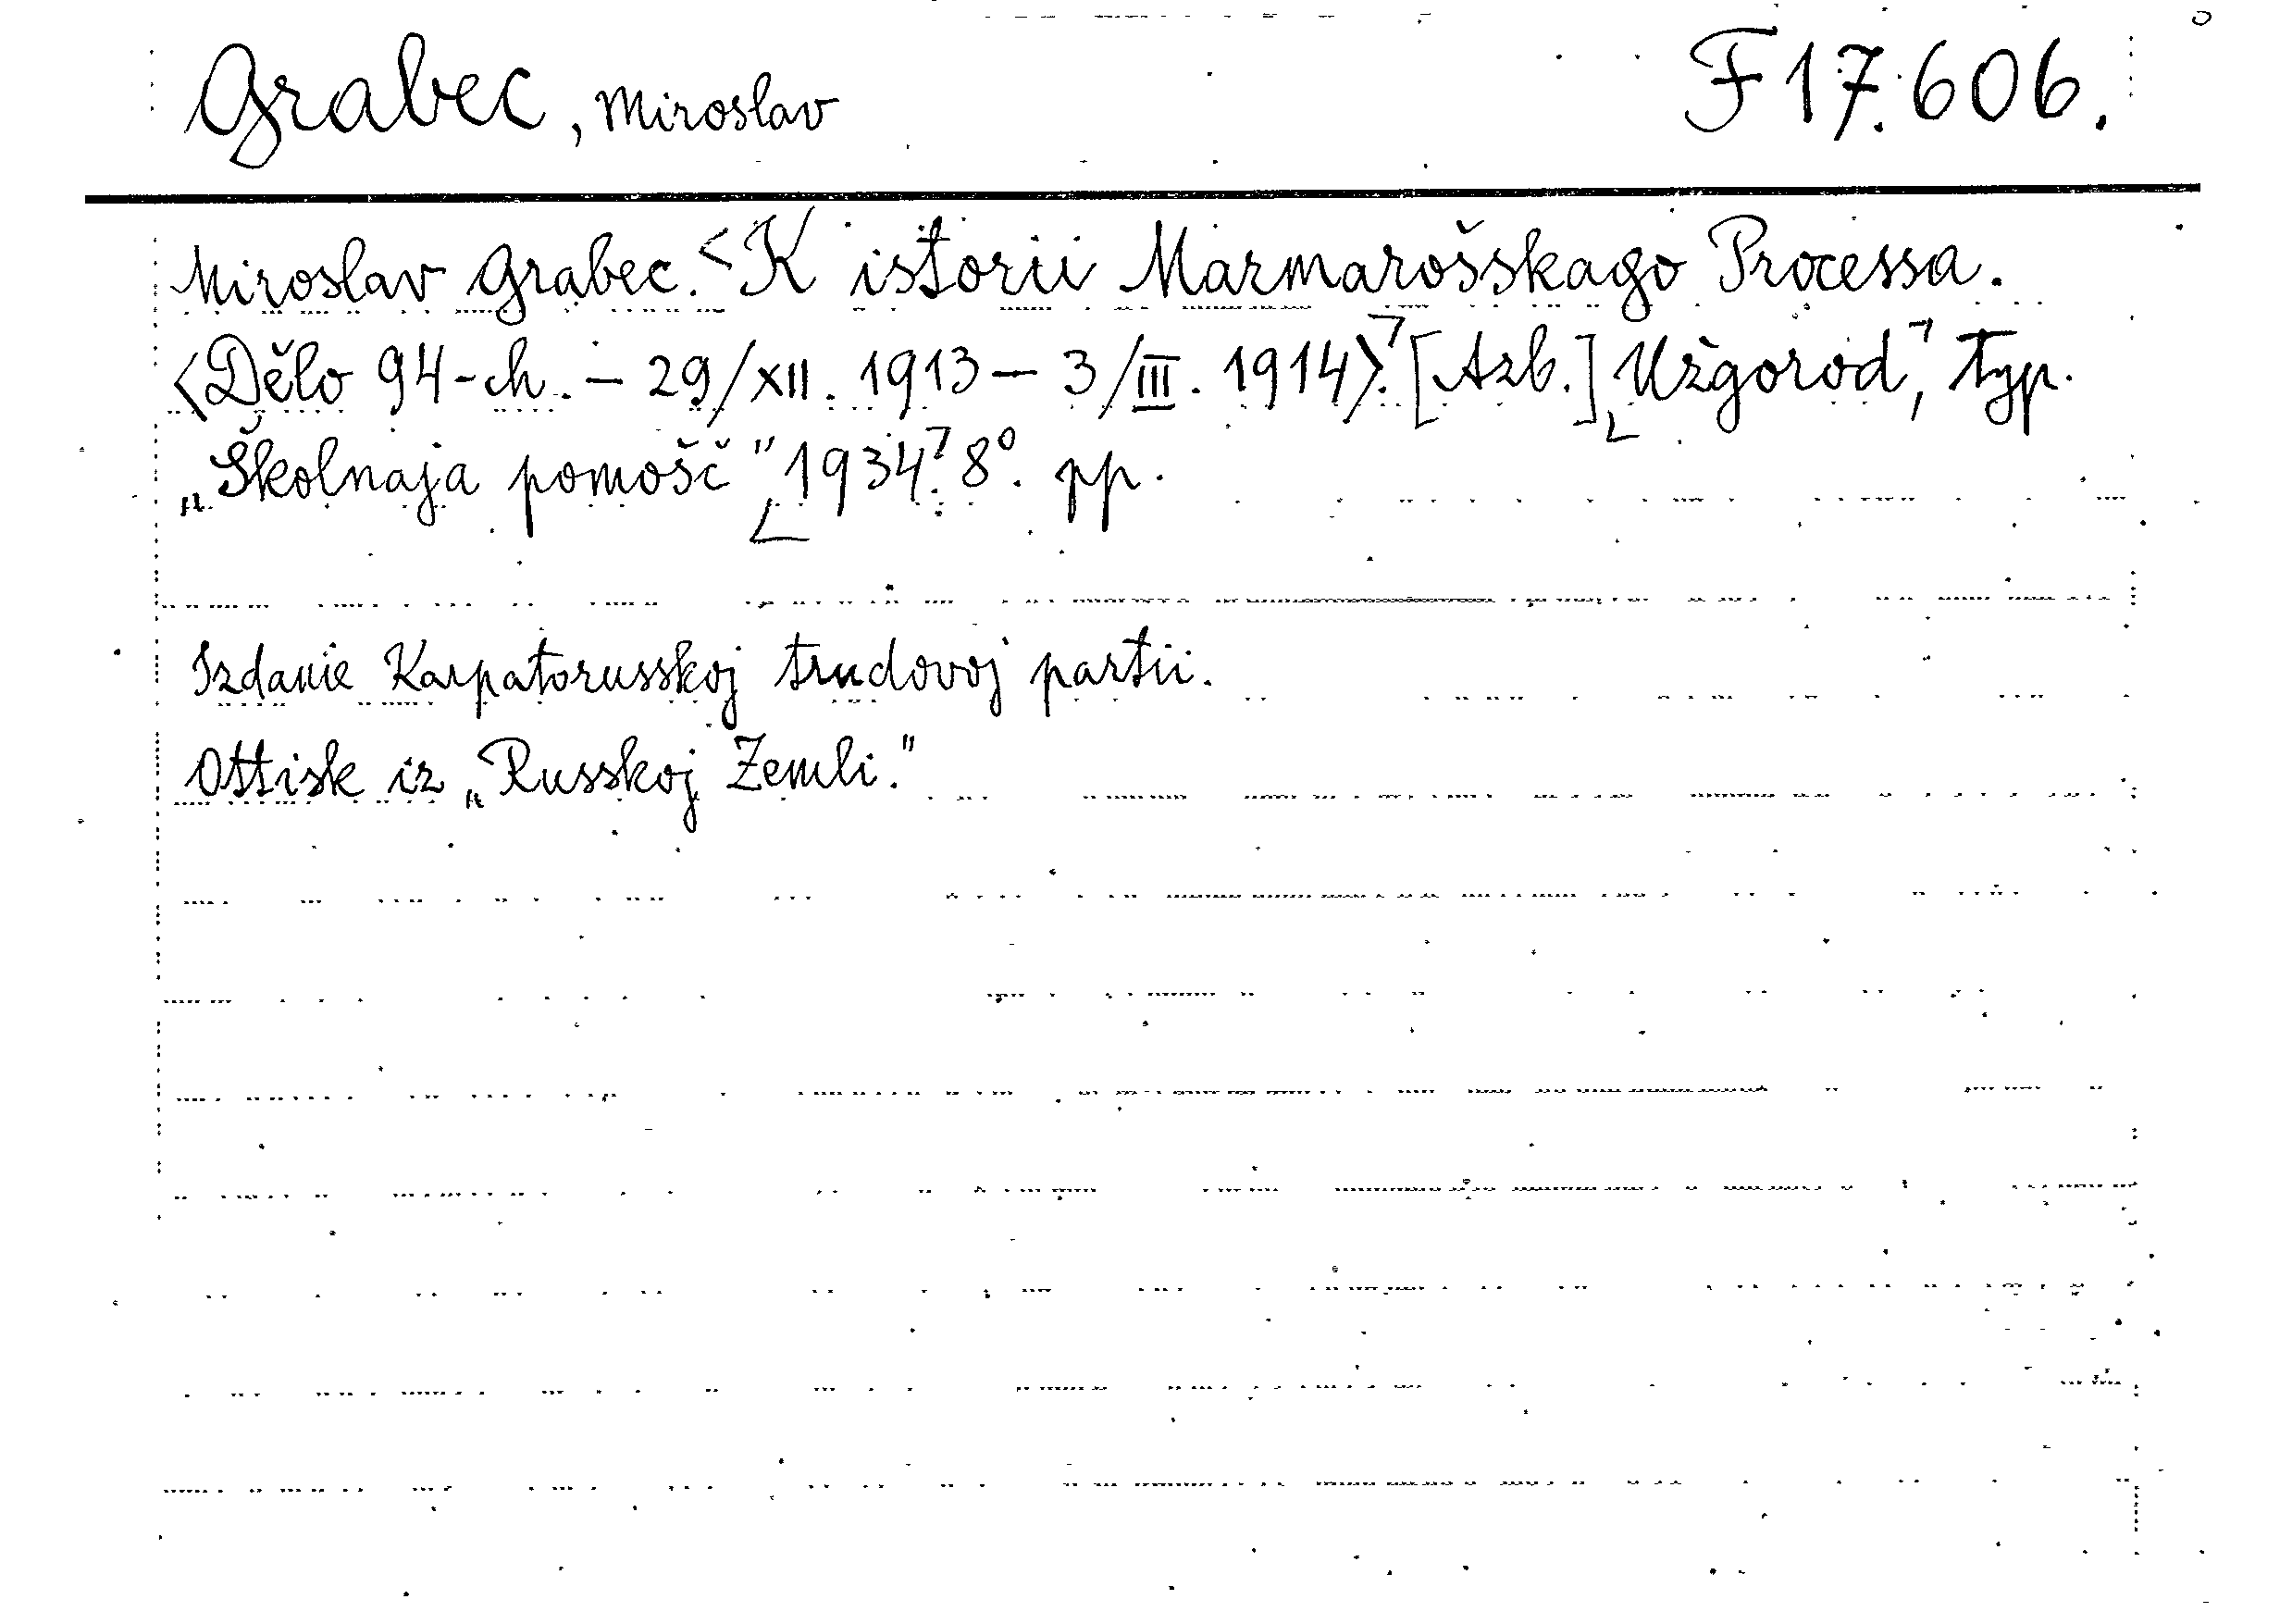 Grabec, Miroslav F 17.606.
Miroslav Grabec. <K istorii Marmarošskago Processa.
<Dělo 94-ch. – 29/XII. 1913 – 3/III. 1914>.⌝ [Azb.] ⌞Užgorod,⌝ typ.
„Školnaja pomošč" ⌞1934.⌝ 8°. pp.
Izdanie Karpatorusskoj trudovoj partii.
Ottisk iz „Russkoj Zemli."